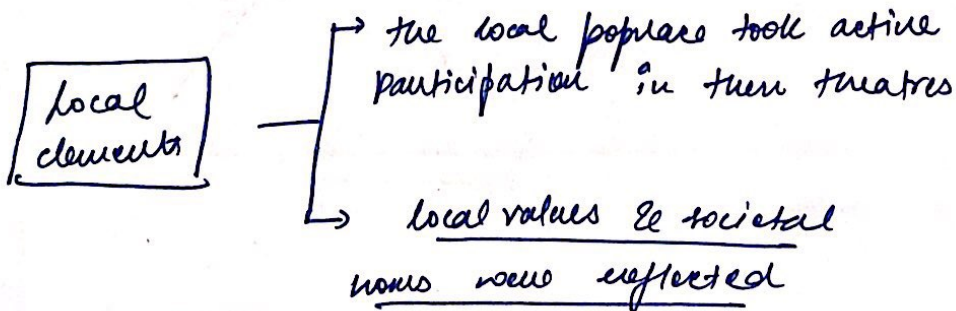 Local
elements
the local populace took active
participation in these theatres
local values & societal
norms were reflected